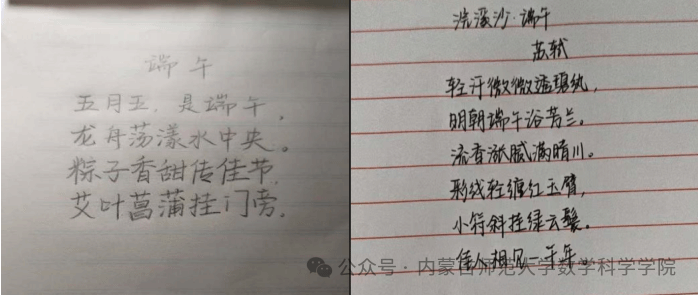 端午
五月五，是端午。
龙舟荡漾水中央。
粽子香甜传佳节，
艾叶菖蒲挂门旁。
浣溪沙·端午
苏轼
轻汗微微透碧纨，
明朝端午浴芳兰。
流香涨腻满晴川。
彩线轻缠红玉臂，
小符斜挂绿云鬟。
佳人相见一千年。
公众号·内蒙古师范大学数学科学学院